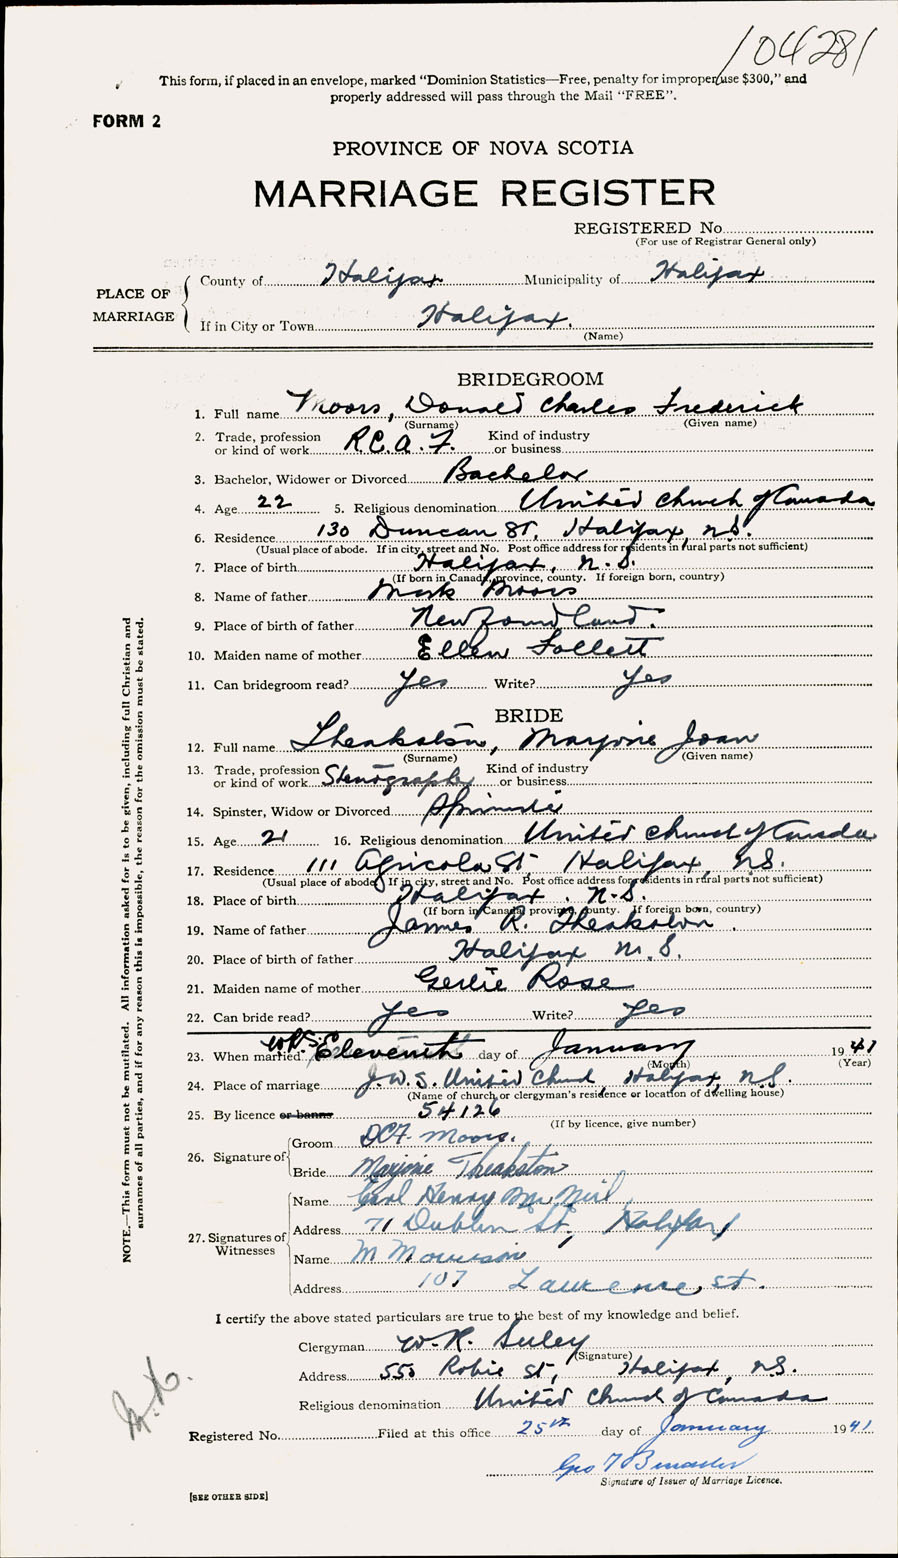 104281
This form, if placed in an envelope, marked "Dominion Statistics—Free, penalty for improper use $300," and
properly addressed will pass through the Mail "FREE".
FORM 2
PROVINCE OF NOVA SCOTIA
MARRIAGE REGISTER
REGISTERED No.
(For use of Registrar General only)
PLACE OF MARRIAGE
County of Halifax Municipality of Halifax
If in City or Town Halifax.
(Name)
BRIDEGROOM
1. Full name Moors, Donald Charles Frederick
(Surname) (Given name)
2. Trade, profession or kind of work R.C.A.F. Kind of industry or business
3. Bachelor, Widower or Divorced Bachelor
4. Age 22 5. Religious denomination United Church of Canada
6. Residence 130 Duncan St, Halifax, N.S.
(Usual place of abode. If in city, street and No. Post office address for residents in rural parts not sufficient)
7. Place of birth Halifax, N.S.
(If born in Canada, province, county. If foreign born, country)
8. Name of father Mark Moors
9. Place of birth of father Newfoundland.
10. Maiden name of mother Ellen Follett
11. Can bridegroom read? Yes Write? Yes
BRIDE
12. Full name Theakston, Marjorie Joan
(Surname) (Given name)
13. Trade, profession or kind of work Stenographer Kind of industry or business
14. Spinster, Widow or Divorced Spinster
15. Age 21 16. Religious denomination United Church of Canada
17. Residence 111 Agricola St, Halifax, N.S.
(Usual place of abode. If in city, street and No. Post office address for residents in rural parts not sufficient)
18. Place of birth Halifax, N.S.
(If born in Canada, province, county. If foreign born, country)
19. Name of father James R. Theakston.
20. Place of birth of father Halifax N.S.
21. Maiden name of mother Gertie Rose
22. Can bride read? Yes Write? Yes
23. When married Eleventh day of January 1941
(Month) (Year)
24. Place of marriage J.W.S. United Church, Halifax, N.S.
(Name of church or clergyman's residence or location of dwelling house)
25. By licence or banns 54126
(If by licence, give number)
26. Signature of
Groom DCF Moors.
Bride Marjorie Theakston
27. Signatures of Witnesses
Name Carl Henry McNeil
Address 71 Dublin St, Halifax
Name M Morrison
Address 107 Lawrence, St.
I certify the above stated particulars are true to the best of my knowledge and belief.
Clergyman W.R. Seeley
(Signature)
Address 550 Robie St, Halifax, N.S.
Religious denomination United Church of Canada
Registered No. Filed at this office 25th day of January 1941
Geo
Signature of Issuer of Marriage Licence.
[SEE OTHER SIDE]
NOTE.—This form must not be mutilated. All information asked for is to be given, including full Christian and
surnames of all parties, and if for any reason this is impossible, the reason for the omission must be stated.